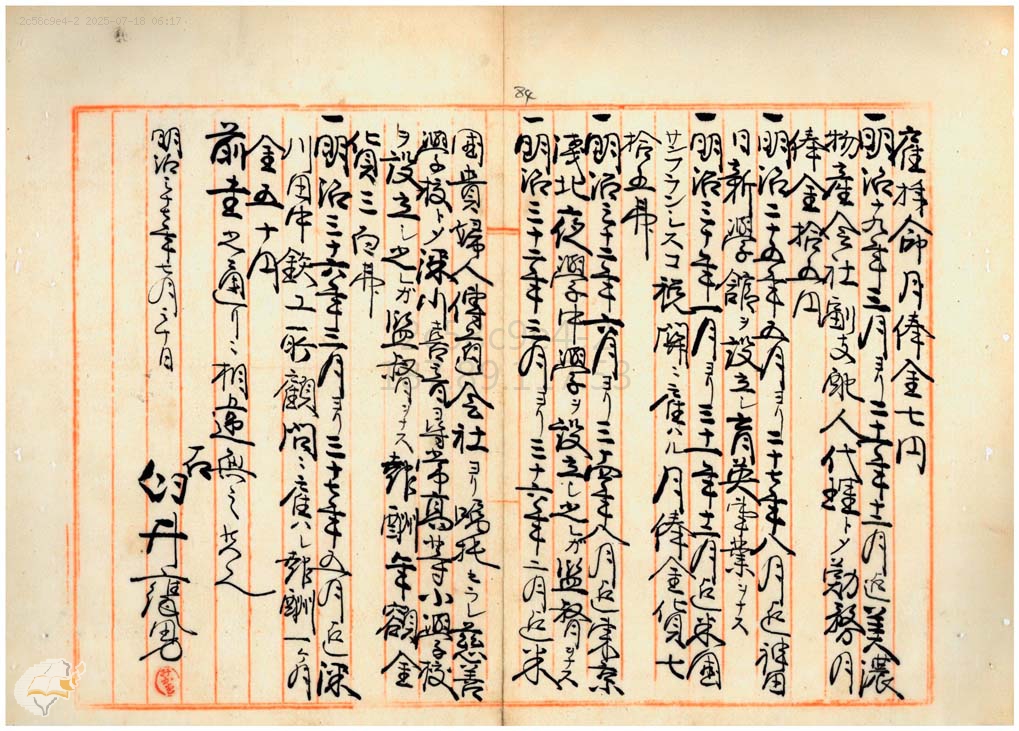 2c58c9e4-2 2025-07-18 06:17
84
雇拝命月俸金七円
一明治十九年三月ヨリ二十五年十二月迄美濃
物産会社副支配人代理トメ勤務月
俸金拾五円
一明治二十五年五月ヨリ二十七年八月迄神田
日新学館ヲ設立シ育英事業ヲナス
一明治三十年一月ヨリ三十一年十二月迄米国
サンフランシスコ税関ニ雇ハル月俸金貨七
拾五弗
一明治三十二年六月ヨリ三十四年八月迄東京
浅北夜学中学ヲ設立シ之レガ監督ヲナス
一明治三十二年三月ヨリ三十六年二月迄米
国貴婦人傳道会社ヨリ嘱托セラレ慈善
学校トメ深川善隣尋常高等小学校
ヲ設立シ之レガ監督ヲナス報酬年額金
貨三百弗
一明治三十六年三月ヨリ三十七年五月迄深
川田中鉄工所顧問ニ雇ハレ報酬一ヶ月
金五十円
前書之通リニ相違無之候也
明治三十七年七月三十日
右